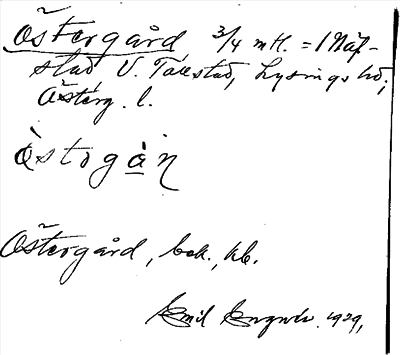 Östergård, 3/4 mtl. = 1 Näf-
stad, V. Tollstad, Lysings hd;
Österg. l.
östərgàn
Östergård, bok., kb.
Emil Engwer 1929,